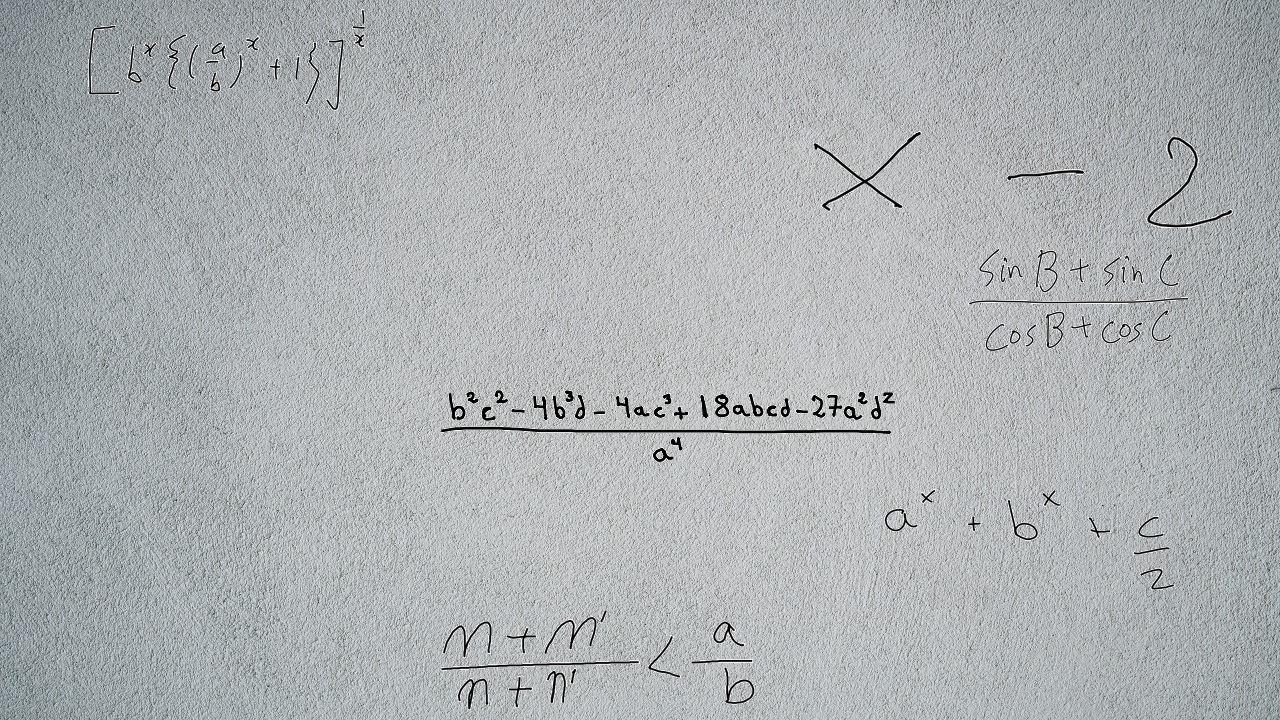 [b^x{(a/b)^x + 1}]^{1/x}
x - 2
\frac{sin B + sin C}{cos B + cos C}
\frac{b²c² - 4b³d - 4ac³ + 18abcd - 27a²d²}{a⁴}
a^x + b^x + \frac{c}{2}
\frac{m + m'}{n + n'} < \frac{a}{b}